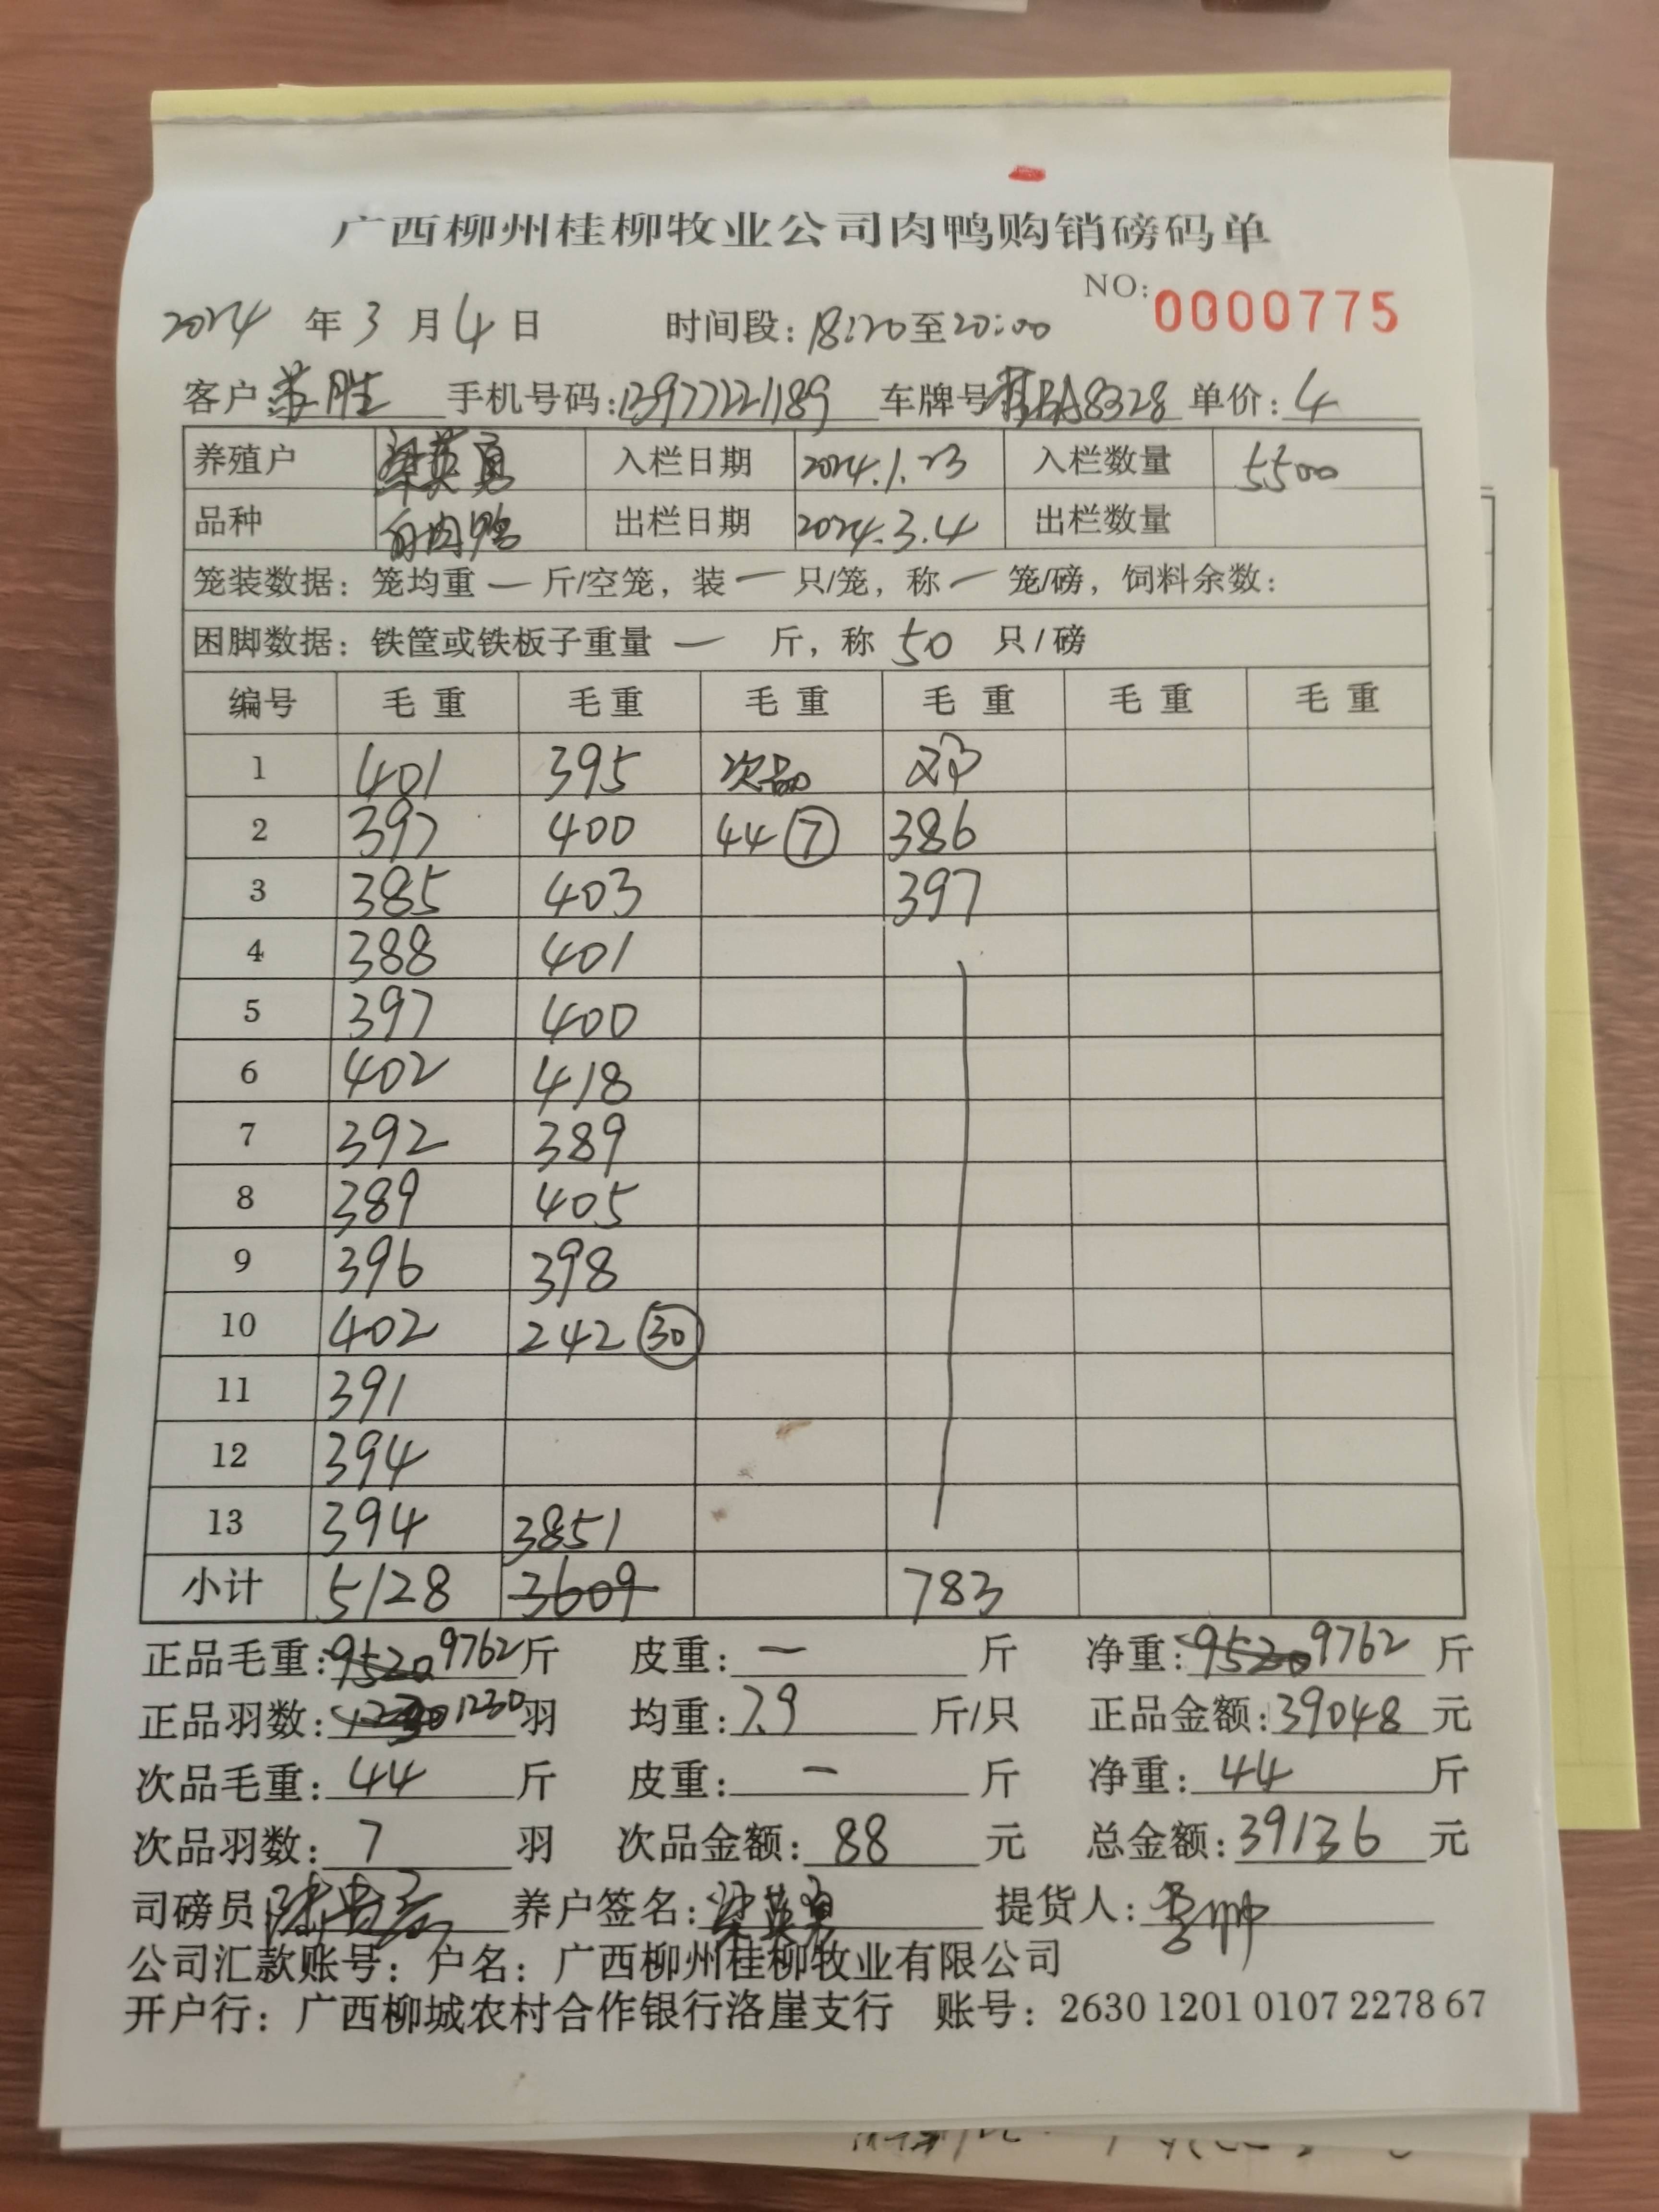 广西柳州桂柳牧业公司肉鸭购销磅码单
NO: 0000775
2024 年 3 月 4 日 时间段: 18:20至20:00
客户 胜 手机号码: 13977221189 车牌号 BA8328 单价: 4
养殖户 梁英勇 入栏日期 2024.1.23 入栏数量 5500
品种 白肉鸭 出栏日期 2024.3.4 出栏数量
笼装数据: 笼均重 一 斤/空笼, 装 一 只/笼, 称 一 笼/磅, 饲料余数:
困脚数据: 铁筐或铁板子重量 一 斤, 称 50 只/磅
编号 毛重 毛重 毛重 毛重 毛重 毛重
1 401 395 次品 邓
2 397 400 44 ⑦ 386
3 385 403 397
4 388 401
5 397 400
6 402 418
7 392 389
8 389 405
9 396 398
10 402 242 ㉚
11 391
12 394
13 394 3851
小计 5128 3609 783
正品毛重: 9520 9762 斤 皮重: 一 斤 净重: 9520 9762 斤
正品羽数: 1230 羽 均重: 7.9 斤/只 正品金额: 39048 元
次品毛重: 44 斤 皮重: 一 斤 净重: 44 斤
次品羽数: 7 羽 次品金额: 88 元 总金额: 39136 元
司磅员: 养户签名: 梁英勇 提货人:
公司汇款账号: 户名: 广西柳州桂柳牧业有限公司
开户行: 广西柳城农村合作银行洛崖支行 账号: 2630 1201 0107 2278 67